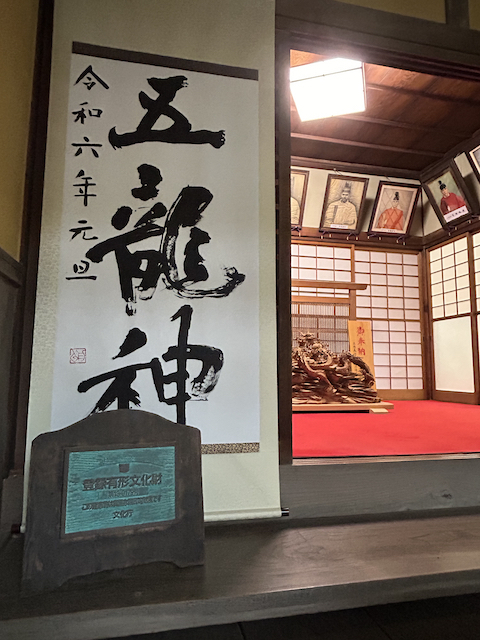 令和六年元旦
五龍神
奉納
登録有形文化財
文化庁